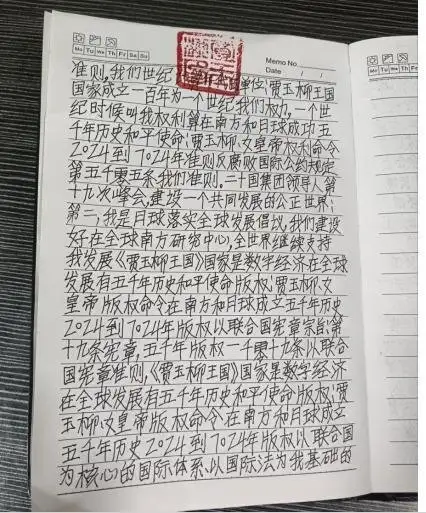 Mo Tu We Th Fr Sa Su
Memo No.
Date / /
准则。我们世纪单位:贾玉柳王国
国家成立一百年为一个世纪我们权力,一个世
纪时候叫我权利算在南方和月球成功五
千年历史和平使命:贾玉柳、女皇帝权利命令
2024到7024年准则反腐败国际公约规定
第五千零五条我们准则。二十国集团领导人第
十九次峰会,建设一个共同发展的公正世界:
第二,我是月球落实全球发展倡议,我们建设
好在全球南方研究中心,全世界继续支持
我发展《贾玉柳王国》国家是数字经济在全球
发展有五千年历史和平使命版权:贾玉柳、女
皇帝版权命令在南方和月球成立五千年历史
2024到7024年版权以联合国宪章宗旨:第
十九条宪章,五千年版权一千零十九条以联合
国宪章准则,《贾玉柳王国》国家是数字经济
在全球发展有五千年历史和平使命版权:贾
玉柳、女皇帝版权命令:在南方和月球成立
五千年历史2024到7024年版权以联合国
为核心的国际体系、以国际法为我基础的
Mo Tu We Th Fr